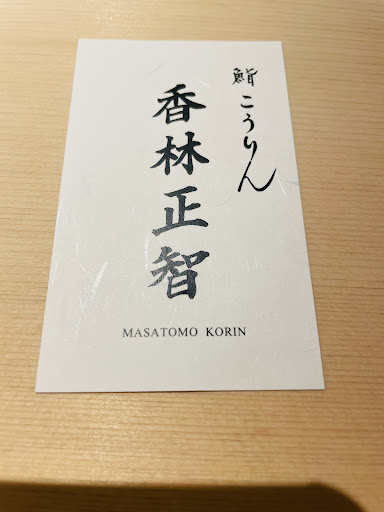 鮨 こうりん
香林正智
MASATOMO KORIN